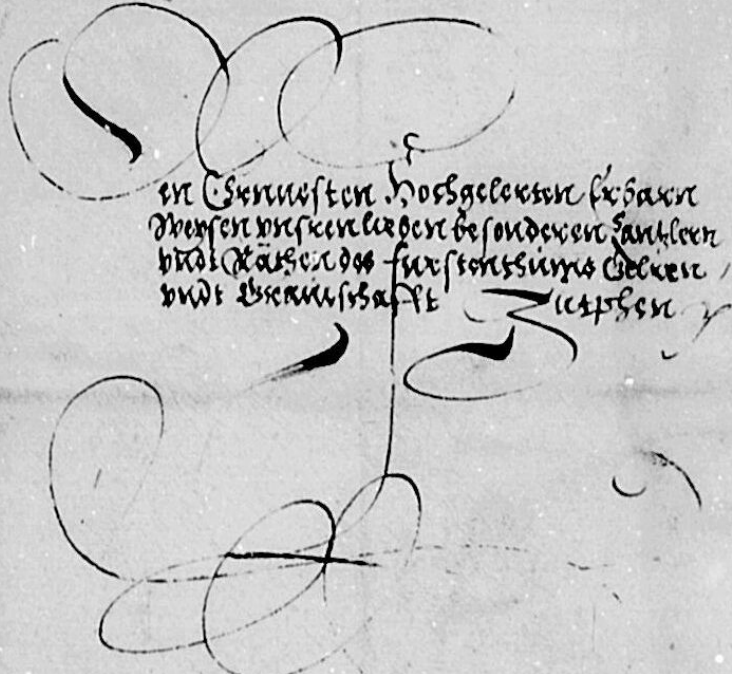 Den Ernuesten Hochgelerten Erbarn
Weysen vnseren lieben besonderen Cantzlern
vndt Räthen des furstenthumbs Gelren
vndt Graueschafft Zutphen